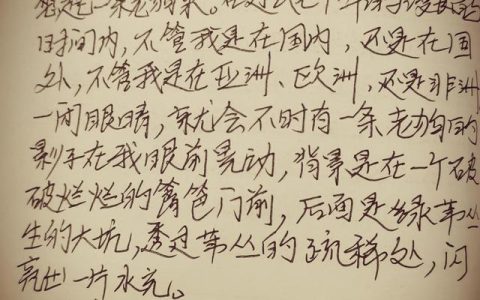 想起一条老狗来。在过去七十年的漫长的
时间内，不管我是在国内，还是在国
外，不管我是在亚洲、欧洲，还是非洲
一闭眼睛，就会不时有一条老狗的
影子在我眼前晃动，背景是在一个破
破烂烂的篱笆门前，后面是绿苇丛
生的大坑，透过苇丛的疏稀处，闪
亮出一片水光。